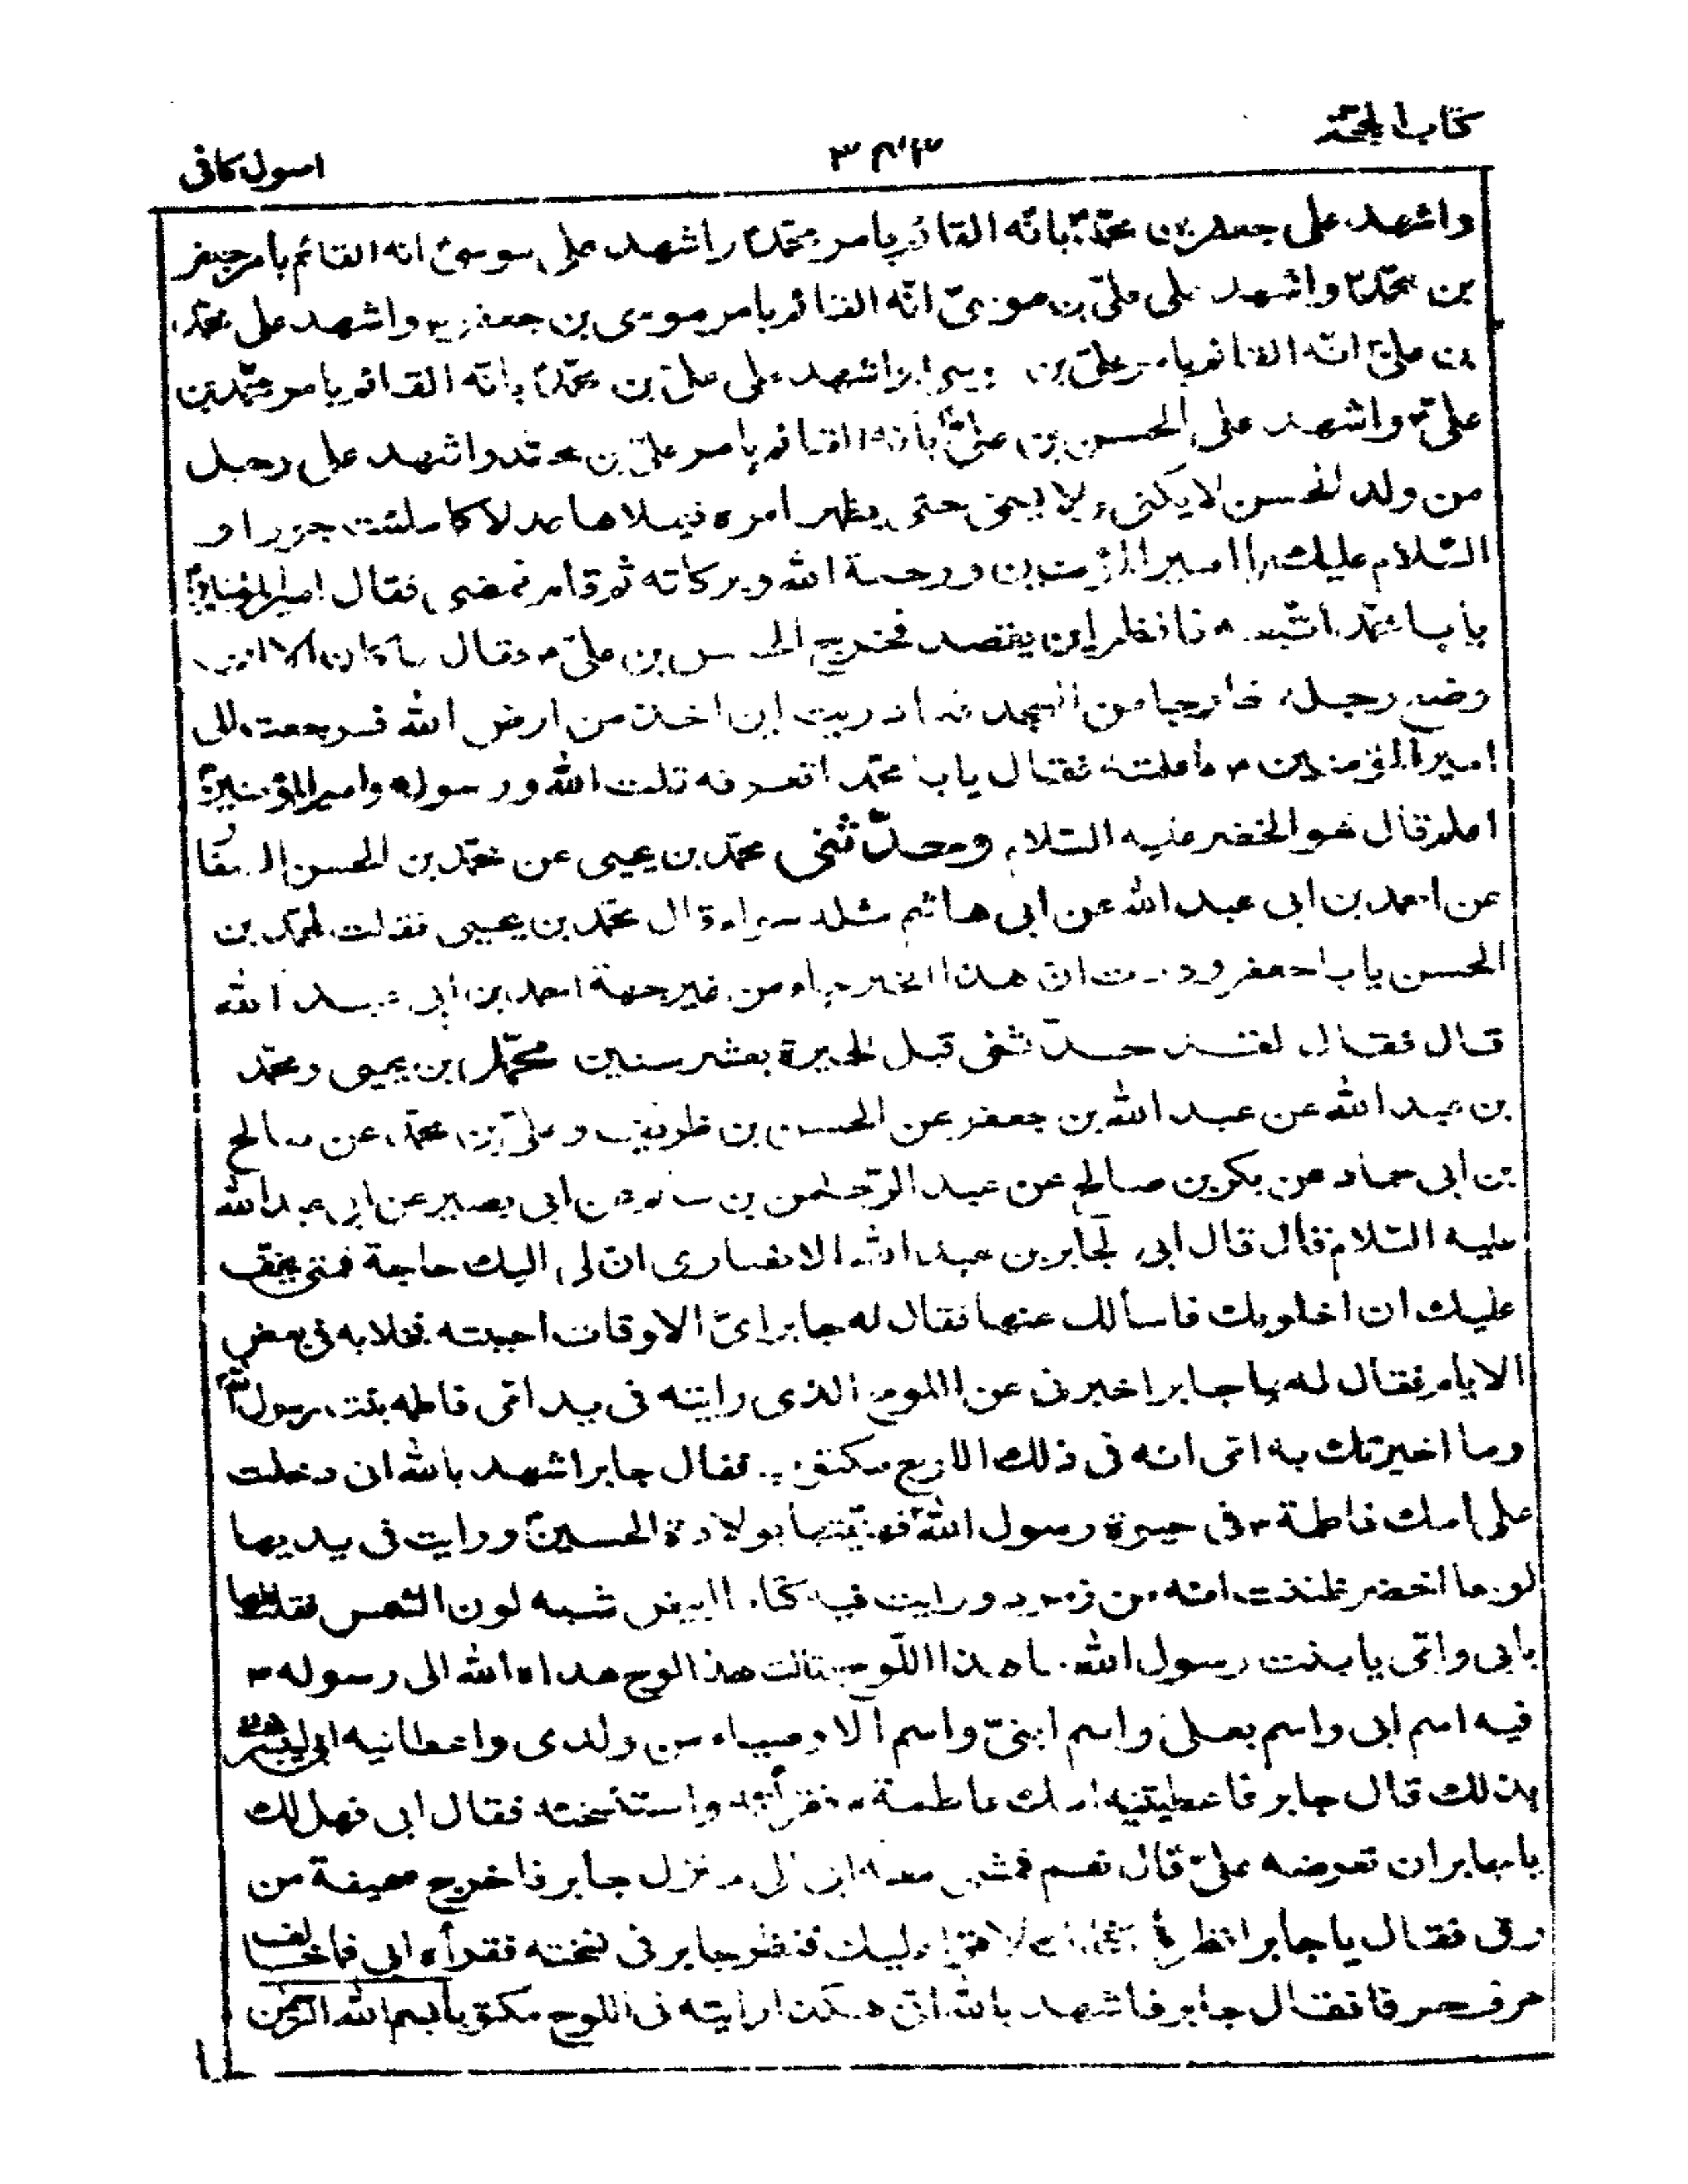 كتاب الحجّة
٣٤٣
اصول كافى
واشهد على جعفر بن محمّدؑ بانّه القائم بامر محمّدؑ واشهد على موسىؑ انه القائم بامر جعفر
بن محمّدؑ واشهد على علىّ بن موسىؑ انّه القائم بامر موسى بن جعفرؑ واشهد على محمّد
بن علىّؑ انّه القائم بامر علىّ بن واشهد على علىّ بن محمّدؑ بانّه القائم بامر محمّد بن
علىّؑ واشهد على الحسن بن علىّؑ بانه القائم بامر علىّ بن محمّد واشهد على رجل
من ولد الحسن لا يكنى ولا يسمى حتى يظهر امره فيملاها عدلا كما ملئت جورا و
السّلام عليك يا امير المؤمنين ورحمة الله وبركاته ثم قام فمضى فقال امير المؤمنينؑ
يا با محمّد اتبعه فانظر اين يقصد فخرج الحسن بن علىّؑ فقال ما كان الا ان
وضع رجله خارجا من المسجد فما دريت اين اخذ من ارض الله فرجعت الى
امير المؤمنينؑ فاعلمته فقال يا با محمّد اتعرفه قلت الله ورسوله وامير المؤمنينؑ
اعلم قال هو الخضر عليه السّلام وحدّثنى محمّد بن يحيى عن محمّد بن الحسن الصفّار
عن احمد بن ابى عبد الله عن ابى هاشم مثله سواء قال محمّد بن يحيى فقلت لمحمّد بن
الحسن يا با جعفر وددت ان هذا الخبر جاء من غير جهة احمد بن ابى عبد الله
قال فقال لقد حدّثنى قبل الحيرة بعشر سنين محمّد بن يحيى ومحمّد
بن عبد الله عن عبد الله بن جعفر عن الحسن بن ظريف وعلىّ بن محمّد عن صالح
بن ابى حماد عن بكر بن صالح عن عبد الرّحمن بن سالم عن ابى بصير عن ابى عبد الله
عليه السّلام قال قال ابى لجابر بن عبد الله الانصارى انّ لى اليك حاجة فمتى يخفّ
عليك ان اخلو بك فاسألك عنها فقال له جابر اىّ الاوقات احببته فخلا به فى بعض
الايام فقال له يا جابر اخبرنى عن اللوح الذى رايته فى يد امّى فاطمه بنت رسول اللهؐ
وما اخبرتك به امّى انه فى ذلك اللوح مكتوب فقال جابر اشهد بالله انى دخلت
على امك فاطمةؑ فى حيوة رسول اللهؐ فهنّيتها بولادة الحسينؑ ورايت فى يديها
لوحا اخضر ظننت انه من زمرد ورايت فيه كتابا ابيض شبه لون الشمس فقلت لها
بابى وامّى يا بنت رسول الله ما هذا اللّوح فقالت هذا لوح هداه الله الى رسولهؐ
فيه اسم ابى واسم بعلى واسم ابنىّ واسم الاوصياء من ولدى واعطانيه ابى ليبشرنى
بذلك قال جابر فاعطيتنيه امك فاطمةؑ فقرأته واستنسخته فقال ابى فهل لك
يا جابر ان تعرضه علىّ قال نعم فمشى معه ابى الى منزل جابر فاخرج صحيفة من
رق فقال يا جابر انظر فى كتابك لاقرأ عليك فنظر جابر فى نسخته فقرأه ابى فما خالف
حرف حرفا فقال جابر فاشهد بالله انّى هكذا رايته فى اللوح مكتوبا بسم الله الرّحمن